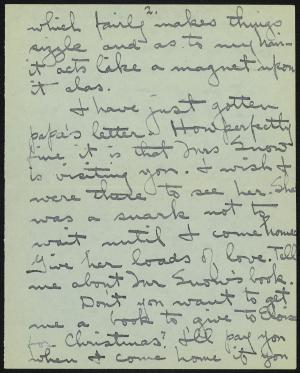 2.
which fairly makes things
sizzle and as to my hair-
it acts like a magnet upon
it alas.
I have just gotten
papa's letter. How perfectly
fine it is that Mrs Snow
is visiting you. I wish I
were there to see her. She
was a snark not to
wait until I come home
Give her loads of love. Tell
me about Mr Snow's book.
Don't you want to get
me a book to give to Eloise
for Christmas? I'll pay you
when I come home if you